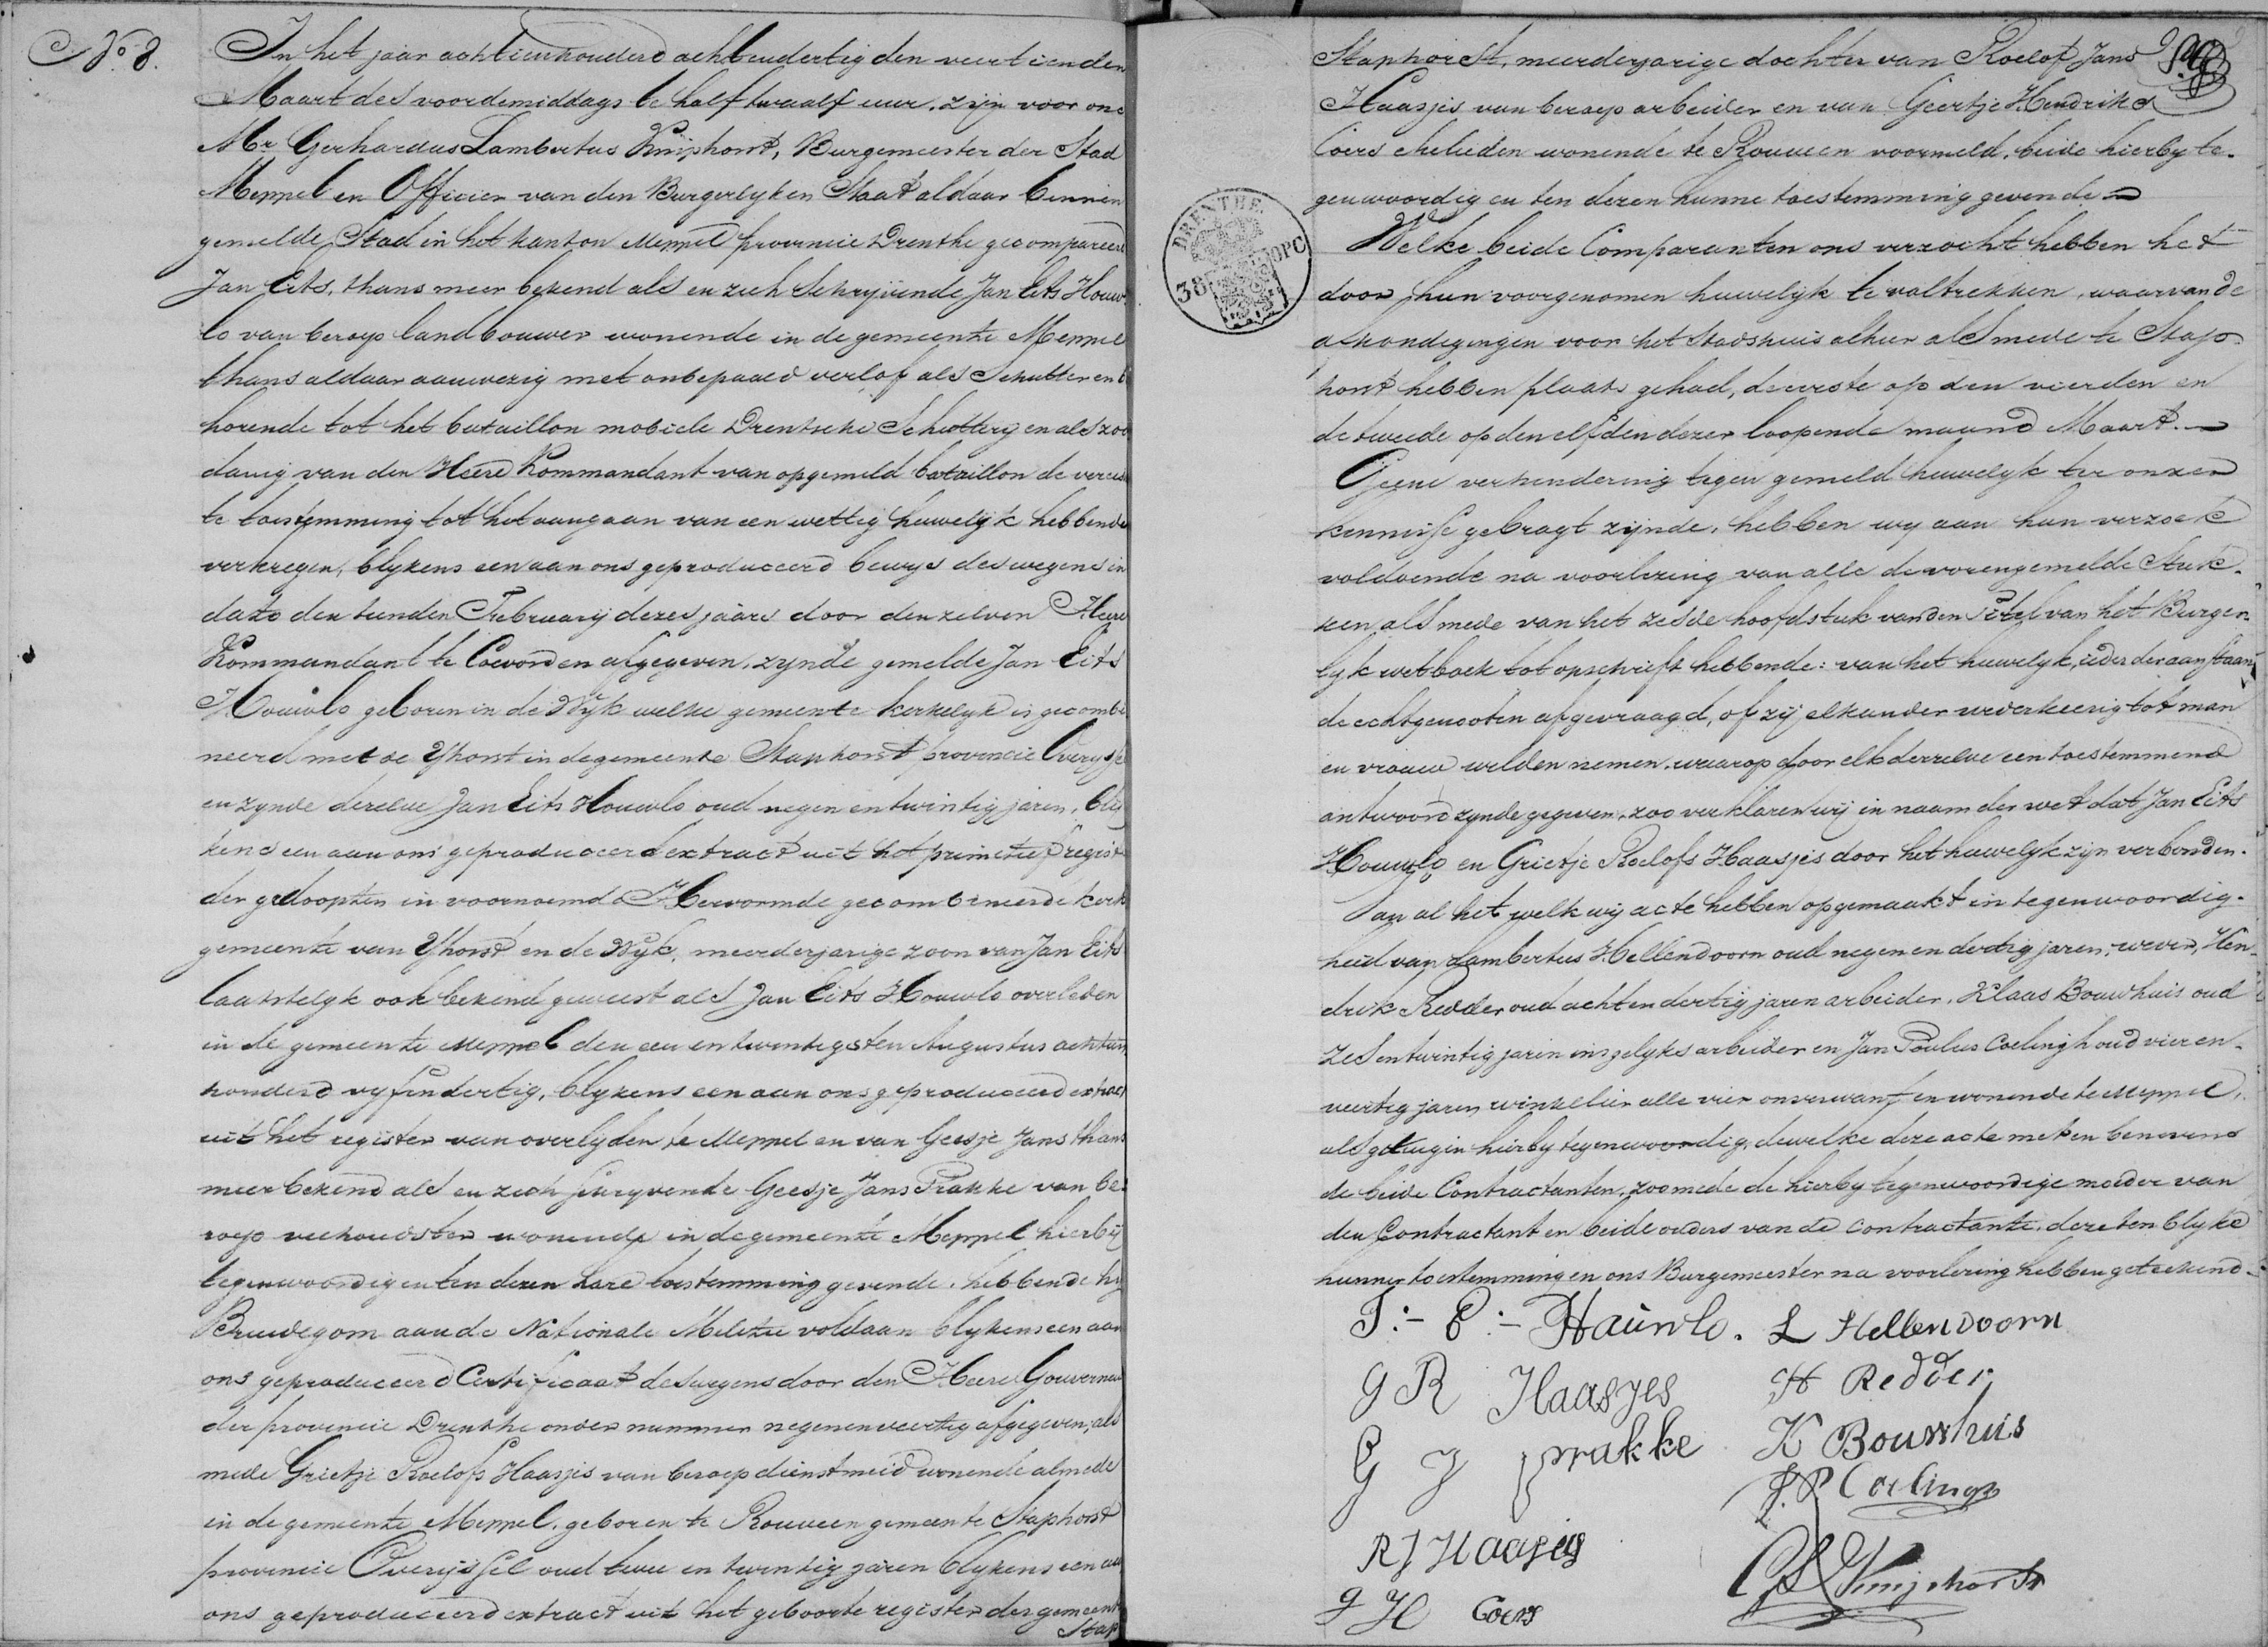 No. 8.
In het jaar achttienhonderd achtendertig den veertienden
Maart des voordemiddags te half twaalf uur, zijn voor ons
Mr Gerhardus Lambertus Knijphorst, Burgemeester der Stad
Meppel en Officier van den Burgerlyken Staat aldaar binnen
gemelde Stad in het kanton Meppel provincie Drenthe gecompareerd
Jan Eits, thans meer bekend als en zich schryvende Jan Eits Houw
lo van beroep landbouwer wonende in de gemeente Meppel
thans aldaar aanwezig met onbepaald verlof als Schutter en b
horende tot het bataillon mobiele Drentsche Schuttery en als zoo
danig van den Heere Kommandant van opgemeld bataillon de vereis
te toestemming tot het aangaan van een wettig huwelyk hebbende
verkregen, blykens een aan ons geproduceerd bewys deswegens in
dato den tienden February dezes jaars door denzelven Heere
Kommandant te Coevorden afgegeven, zynde gemelde Jan Eits
Houwlo geboren in de Wyk welke gemeente kerkelyk is gecombi
neerd met de Yhorst in de gemeente Staphorst provincie Overyss
en zynde dezelve Jan Eits Houwlo oud negen en twintig jaren, bly
kens een aan ons geproduceerd extract uit het primitief regist
der gedoopten in voornoemde Hervormde gecombineerde kerk
gemeente van Yhorst en de Wyk, meerderjarige zoon van Jan Eits
laatstelyk ook bekend geweest als Jan Eits Houwlo overleden
in de gemeente Meppel den een en twentigsten Augustus achttien
honderd vyfendertig, blykens een aan ons geproduceerd extract
uit het register van overlyden te Meppel en van Geesje Jans thans
meer bekend als en zich schryvende Geesje Jans Prakke van be
roep veehoudster wonende in de gemeente Meppel hierbij
tegenwoordig en ten dezen hare toestemming gevende, hebbende hy
Bruidegom aan de Nationale Militie voldaan blykens een aan
ons geproduceerd Certificaat deswegens door den Heere Gouverneur
der provincie Drenthe onder nummer negenenveertig afgegeven, als
mede Grietje Roelofs Haasjes van beroep dienstmeid wonende almede
in de gemeente Meppel, geboren te Rouveen gemeente Staphorst
provincie Overijssel oud twee en twintig jaren blykens een aan
ons geproduceerd extract uit het geboorte register der gemeente
Stap
Staphorst, meerderjarige dochter van Roelof Jans
Haasjes van beroep arbeider en van Geertje Hendriks
Coers ehelieden wonende te Rouveen voormeld, beide hierby te-
genwoordig en ten dezen hunne toestemming gevende
DRENTHE
38 OPC
Welke beide Comparanten ons verzocht hebben het
door hun voorgenomen huwelyk te voltrekken, waarvan de
afkondigingen voor het Stadshuis alhier alsmede te Stap
horst hebben plaats gehad, de eerste op den vierden en
de tweede op den elfden dezer loopende maand Maart.
Geene verhindering tegen gemeld huwelyk ter onzer
kennisse gebragt zijnde, hebben wy aan hun verzoek
voldoende na voorlezing van alle de vorengemelde Stuk-
ken alsmede van het zesde hoofdstuk van den titel van het Burger-
lyk wetboek tot opschrift hebbende: van het huwelyk, ieder der aanstaan
de echtgenooten afgevraagd, of zij elkander wederkeerig tot man
en vrouw wilden nemen, waarop door elk derzelve een toestemmend
antwoord zynde gegeven, zoo verklaren wij in naam der wet dat Jan Eits
Houwlo en Grietje Roelofs Haasjes door het huwelyk zijn verbonden.
Van al het welk wij acte hebben opgemaakt in tegenwoordig-
heid van Lambertus Hellendoorn oud negen en dertig jaren, wever, Hen
drik Redder oud acht en dertig jaren arbeider, Klaas Bouwhuis oud
zes en twintig jaren insgelyks arbeider en Jan Poulus Coelingh oud vier en-
veertig jaren winkelier alle vier onverwant en wonende te Meppel,
als getuigen hierby tegenwoordig, dewelke deze acte met en benevens
de beide Contractanten, zoomede de hierby tegenwoordige moeder van
den Contractant en beide ouders van de contractante, deze ten blyke
hunner toestemming en ons Burgemeester na voorlezing hebben geteekend.
J:- E:- Haúwlo. L Hellendoorn
G R Haasjes H Redder
G J prakke K Bouwhuis
J. P Coelingh
R J Haasjes
G H Coers GL Knijphorst